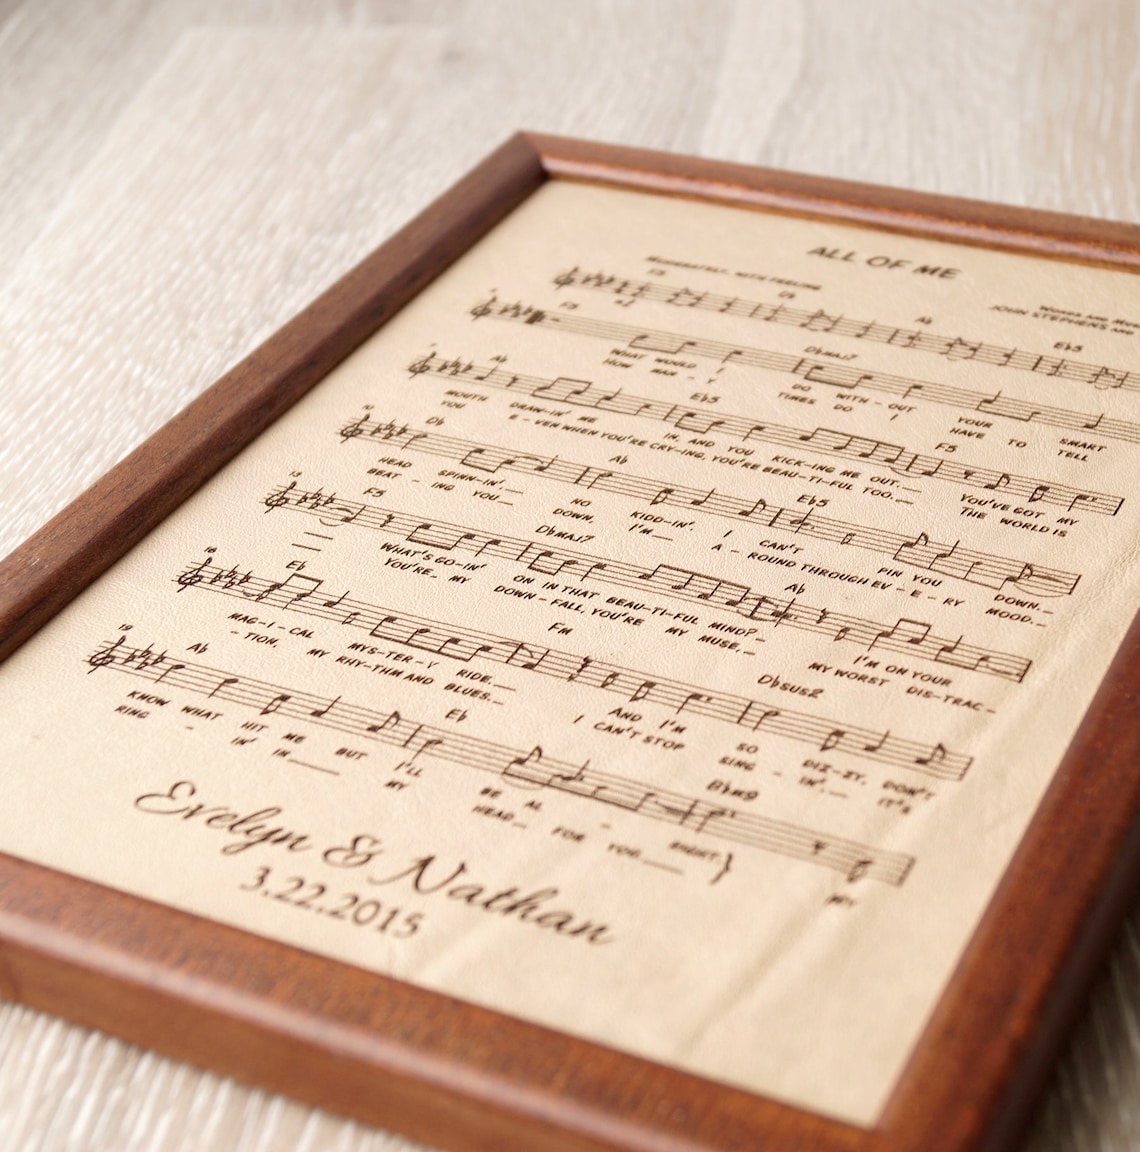 ALL OF ME
MODERATELY, WITH FEELING
WORDS AND
JOHN STEPHENS AND
F5 Db Ab Eb5
F5 Dbmaj7
WHAT WOULD I DO WITH - OUT YOUR SMART
HOW MAN - Y TIMES DO I HAVE TO TELL
Ab Eb5 F5
MOUTH DRAW-IN' ME IN, AND YOU KICK-ING ME OUT. YOU'VE GOT MY
YOU E - VEN WHEN YOU'RE CRY-ING, YOU'RE BEAU-TI-FUL TOO. THE WORLD IS
10
Db Ab Eb5
HEAD SPINN-IN'. NO KIDD-IN'. I CAN'T PIN YOU DOWN.
BEAT - ING YOU DOWN, I'M A - ROUND THROUGH EV - E - RY MOOD.
13
F5 Dbmaj7 Ab
WHAT'S GO-IN' ON IN THAT BEAU-TI-FUL MIND? I'M ON YOUR
YOU'RE MY DOWN - FALL, YOU'RE MY MUSE, MY WORST DIS-TRAC-
16
Eb Fm Dbsus2
MAG-I-CAL MYS-TER-Y RIDE. AND I'M SO DIZ-ZY. DON'T
- TION, MY RHY-THM AND BLUES. I CAN'T STOP SING - IN'. IT'S
19
Ab Eb Bbm9
KNOW WHAT HIT ME BUT I'LL BE AL - RIGHT.
RING - IN' IN MY HEAD FOR YOU. MY
Evelyn & Nathan
3.22.2015